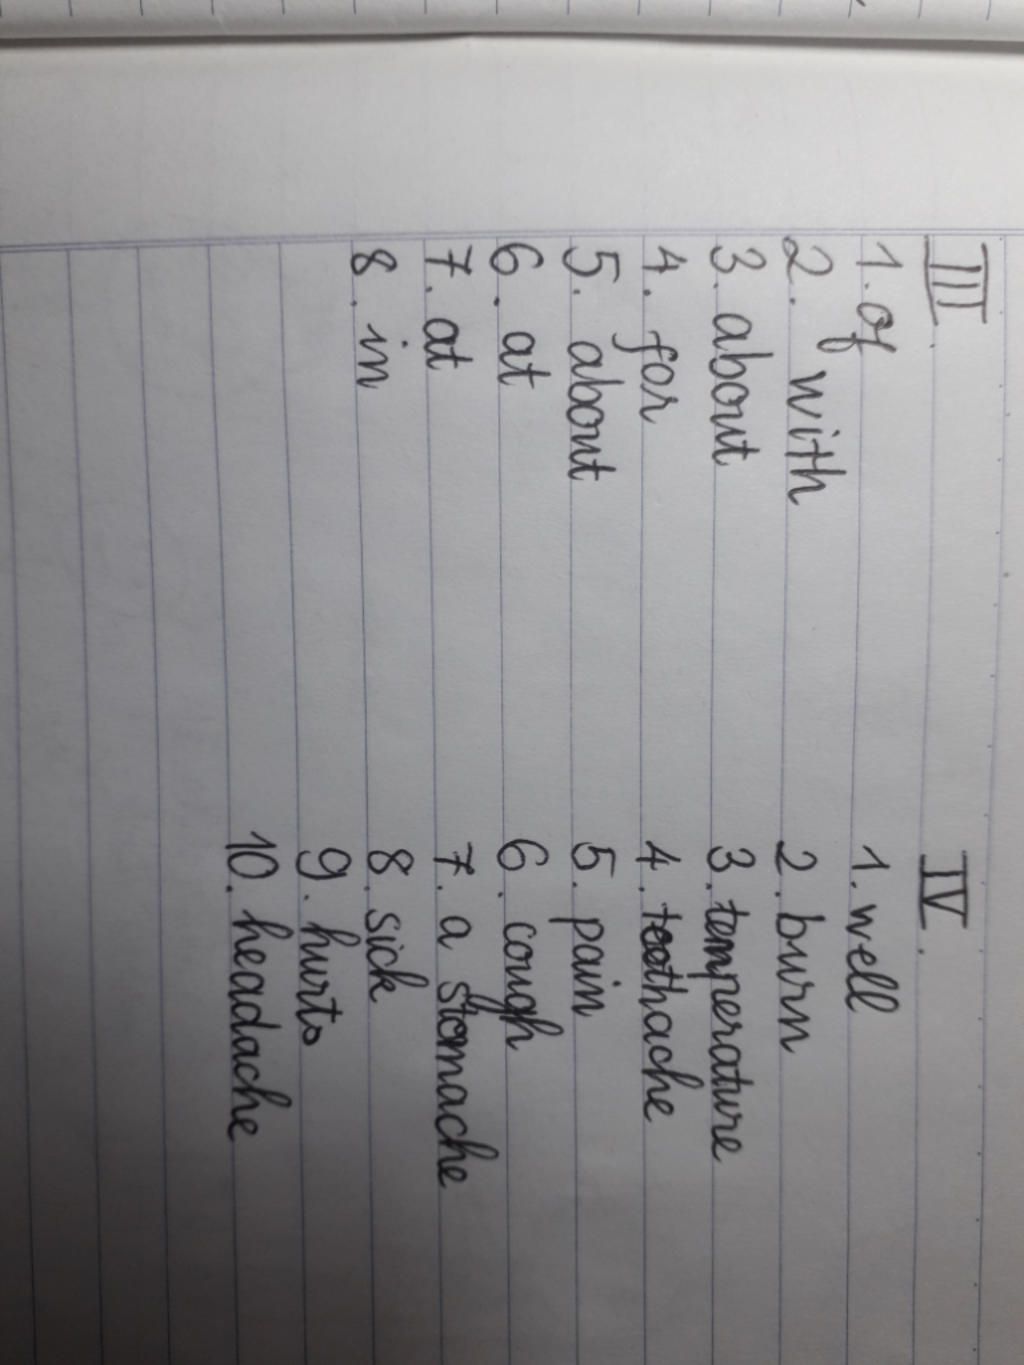 III.
1. of
2. with
3. about
4. for
5. about
6. at
7. at
8. in
IV.
1. well
2. burn
3. temperature
4. toothache
5. pain
6. cough
7. a stomache
8. sick
9. hurts
10. headache